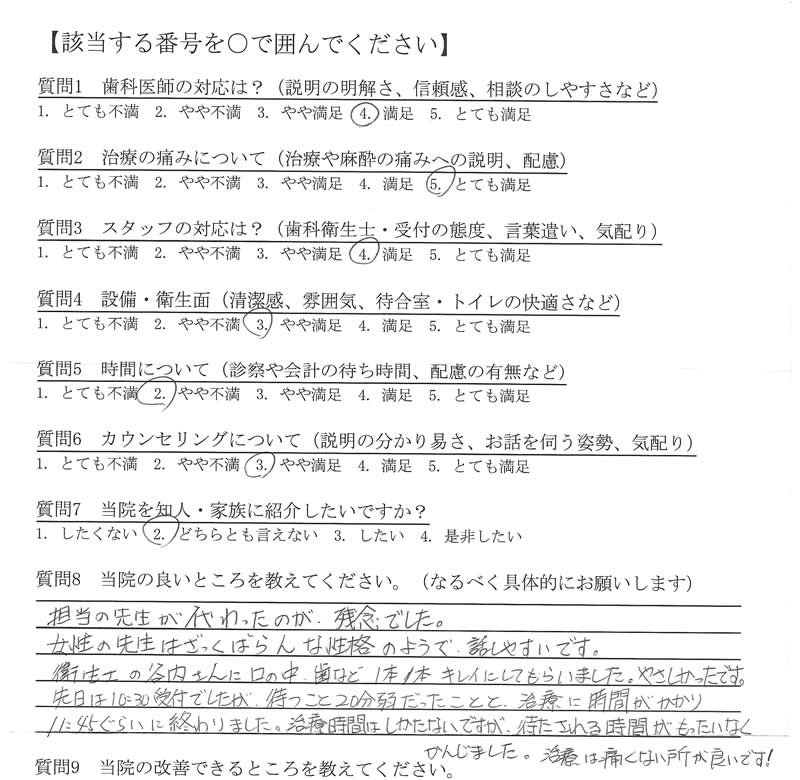 【該当する番号を○で囲んでください】
質問1　歯科医師の対応は？（説明の明解さ、信頼感、相談のしやすさなど）
1. とても不満 2. やや不満 3. やや満足 4. 満足 5. とても満足
質問2　治療の痛みについて（治療や麻酔の痛みへの説明、配慮）
1. とても不満 2. やや不満 3. やや満足 4. 満足 5. とても満足
質問3　スタッフの対応は？（歯科衛生士・受付の態度、言葉遣い、気配り）
1. とても不満 2. やや不満 3. やや満足 4. 満足 5. とても満足
質問4　設備・衛生面（清潔感、雰囲気、待合室・トイレの快適さなど）
1. とても不満 2. やや不満 3. やや満足 4. 満足 5. とても満足
質問5　時間について（診察や会計の待ち時間、配慮の有無など）
1. とても不満 2. やや不満 3. やや満足 4. 満足 5. とても満足
質問6　カウンセリングについて（説明の分かり易さ、お話を伺う姿勢、気配り）
1. とても不満 2. やや不満 3. やや満足 4. 満足 5. とても満足
質問7　当院を知人・家族に紹介したいですか？
1. したくない 2. どちらとも言えない 3. したい 4. 是非したい
質問8　当院の良いところを教えてください。（なるべく具体的にお願いします）
担当の先生が代わったのが、残念でした。
女性の先生はざっくばらんな性格のようで、話しやすいです。
衛生士の谷内さんに口の中、歯など1本1本キレイにしてもらいました。やさしかったです。
先日は10:30受付でしたが、待つこと20分弱だったことと、治療に時間がかかり
11:45ぐらいに終わりました。治療時間はしかたないですが、待たされる時間がもったいなく
かんじました。治療は痛くない所が良いです!
質問9　当院の改善できるところを教えてください。